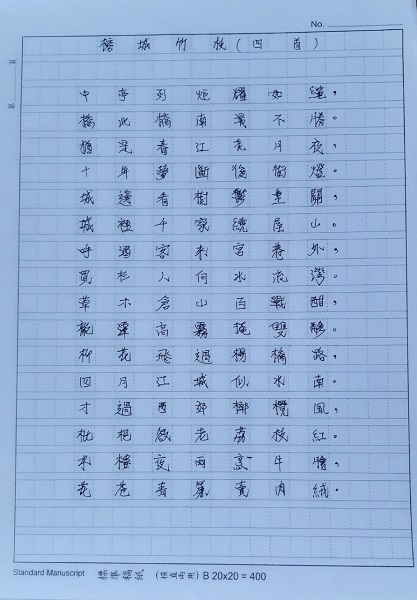 No.
榕城竹枝(四首)
中亭列炬耀如繩，
橋北橋南漫不勝。
猶是春江花月夜，
十年夢斷後街燈。
城邊香樹鬱重關，
城裡千家繞屋山。
呼酒客來宮巷外，
買杉人向水流灣。
草木倉山百戰酣，
龍潭高霧掩雙驂。
柳花飛過楊橋路，
四月江城似水南。
才過西郊橄欖風，
枇杷餘老荔枝紅。
米樓夜雨烹牛膾，
花巷青簾賣肉絨。
Standard Manuscript 標準稿紙 (橫直兩用) B 20x20 = 400